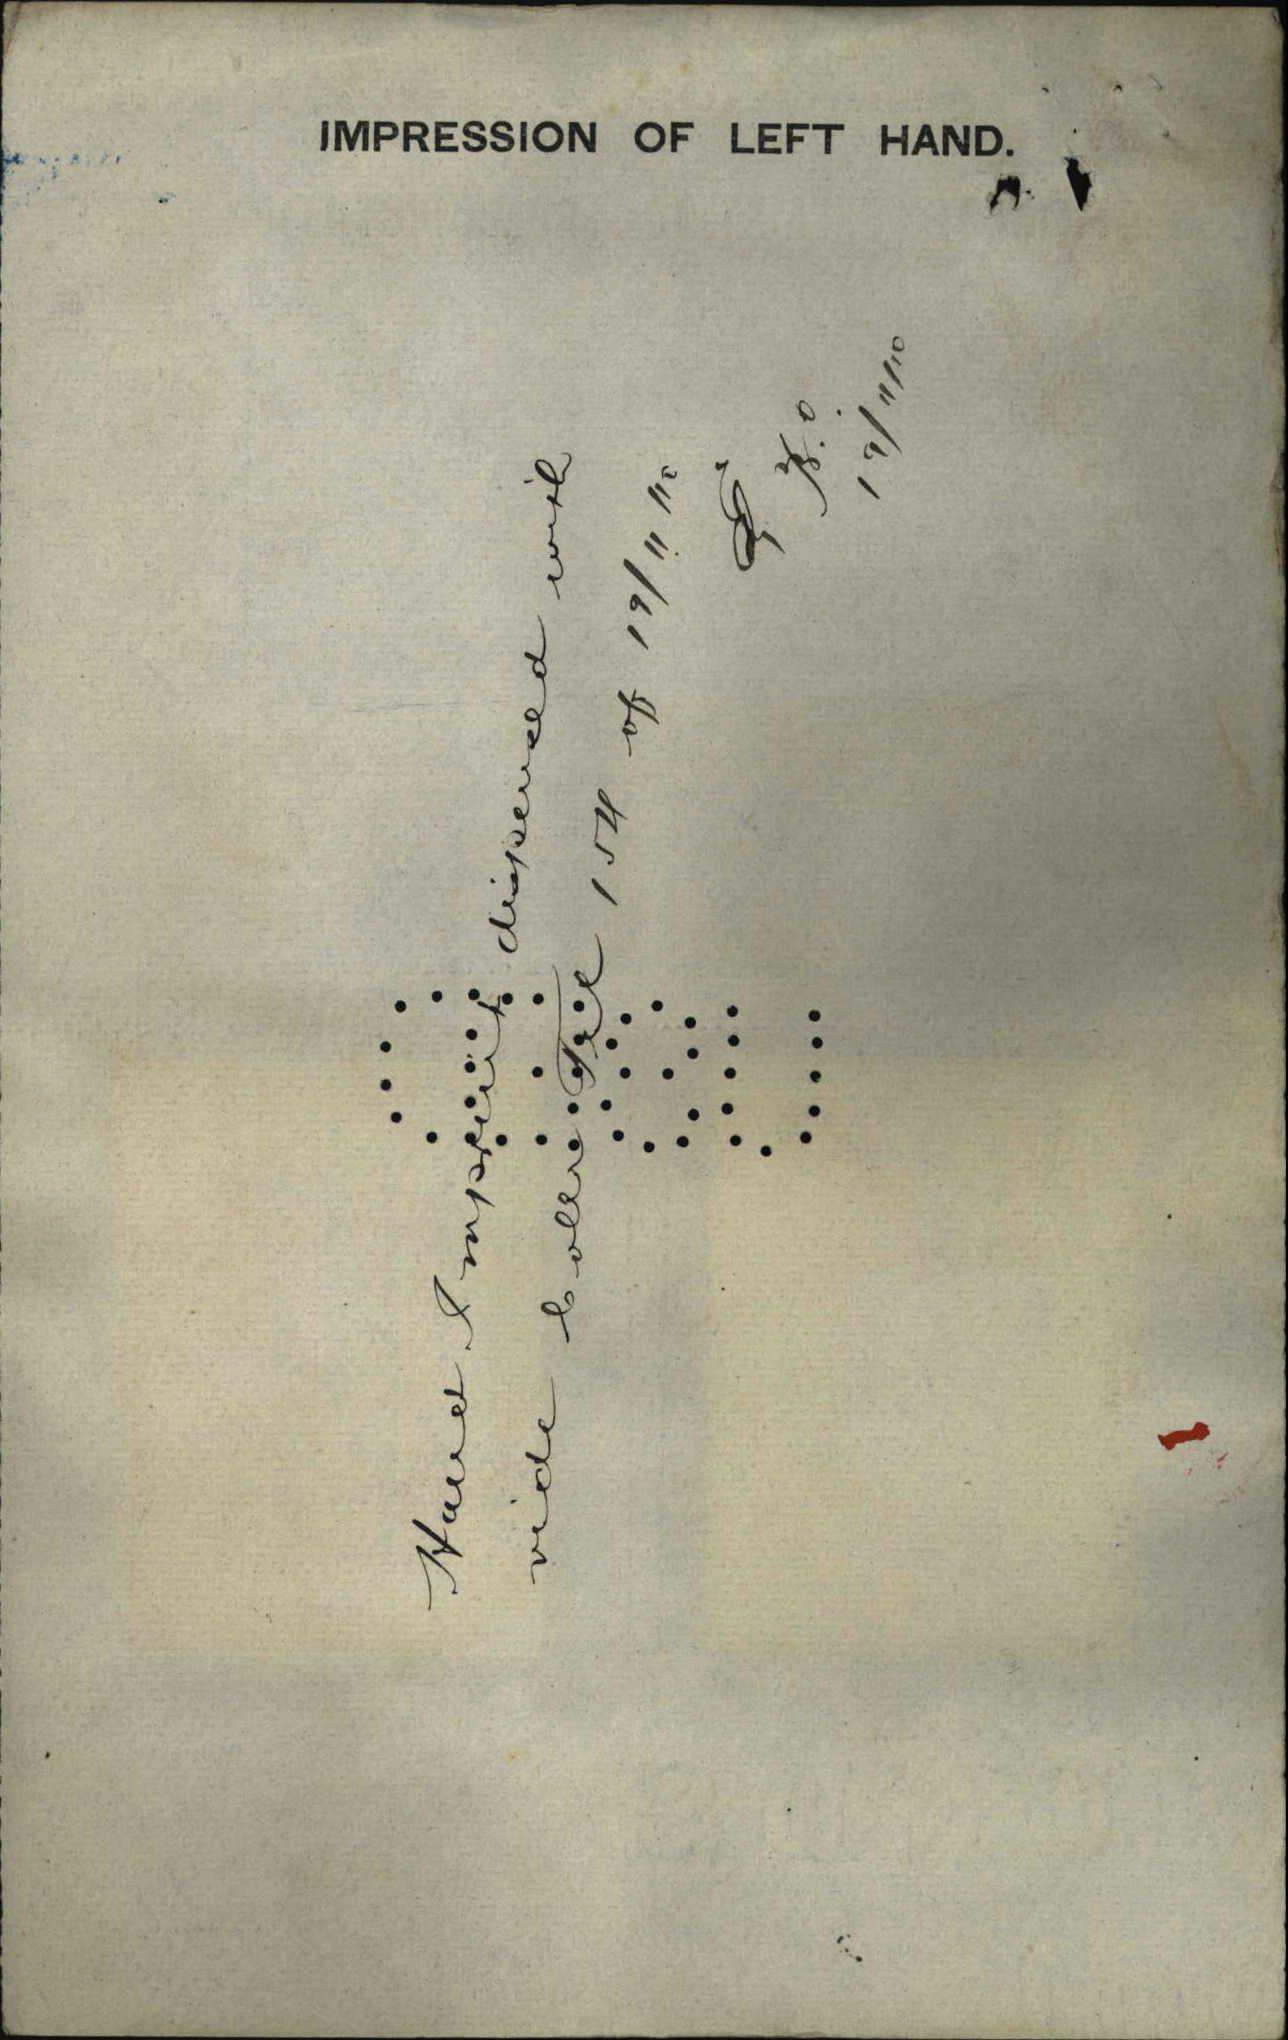 IMPRESSION OF LEFT HAND.
Hand Imprint dispensed with
vide Coll: Tel 154 of 19/11/10
19/11/10